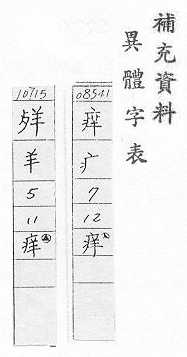 補充資料
異體字表
08541
疒
7
12
痒
10715
羊
5
11
痒